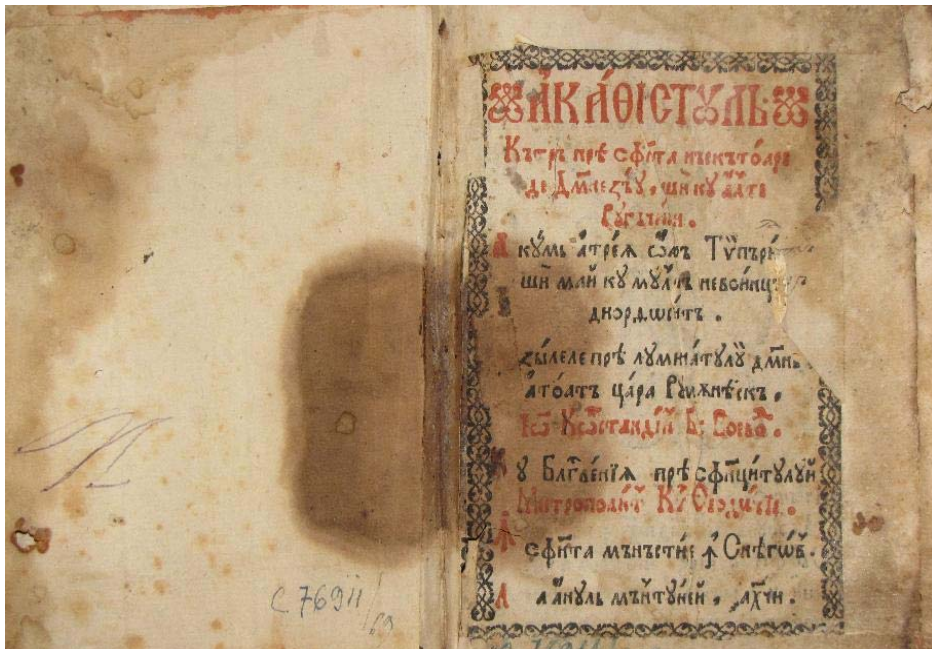 АКАѲІСТꙊЛЬ
Кътръ прѣ сфⷩ҇та нъскътоаре
де Дм҃незъу, ши ку алте
Ругъчюни.
Акумь атрея оаръ Тѷпъри
ши май ку мултъ невоинцъ
диорѫѡит .
Ꙁилеле прѣ луминатулуй дм҃нь
а тоатъ цара Румѫнѣскъ .
Іѡ Кѡнстандинь Б: Воевод .
Ку Блгⷭ҇венїя прѣ сфⷩ҇цитулуй
Митрополит Кѷ Ѳеодосїе .
Ꙟ сфⷩ҇та мънъстире ꙟ Снѣгѡв .
Ла анулъ мънтуиеи , ҂ахчи .
С 76911